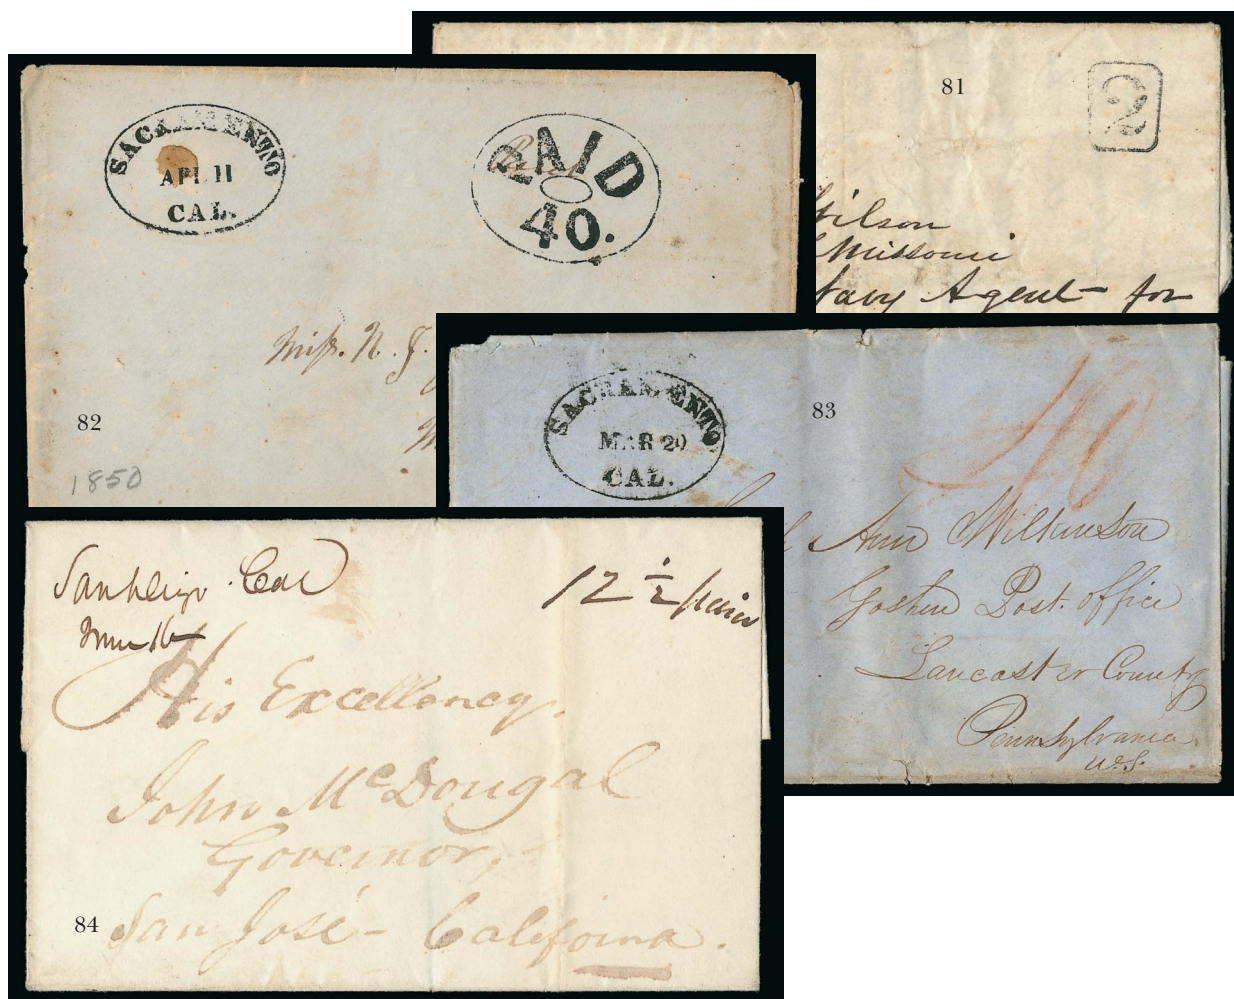 81
2
Wilson
Missouri
Navy Agent for
SACRAMENTO
APL 11
CAL.
PAID
40.
Miss. N. J.
82
1850
83
SACRAMENTO
MAR 20
CAL.
40
Ann Wilkinson
Goshen Post. office
Lancaster County
Pennsylvania
U.S.
San Diego Cal
12 1/2 paid
His Excellency,
John McDougal
Governor,
San José - California.
84